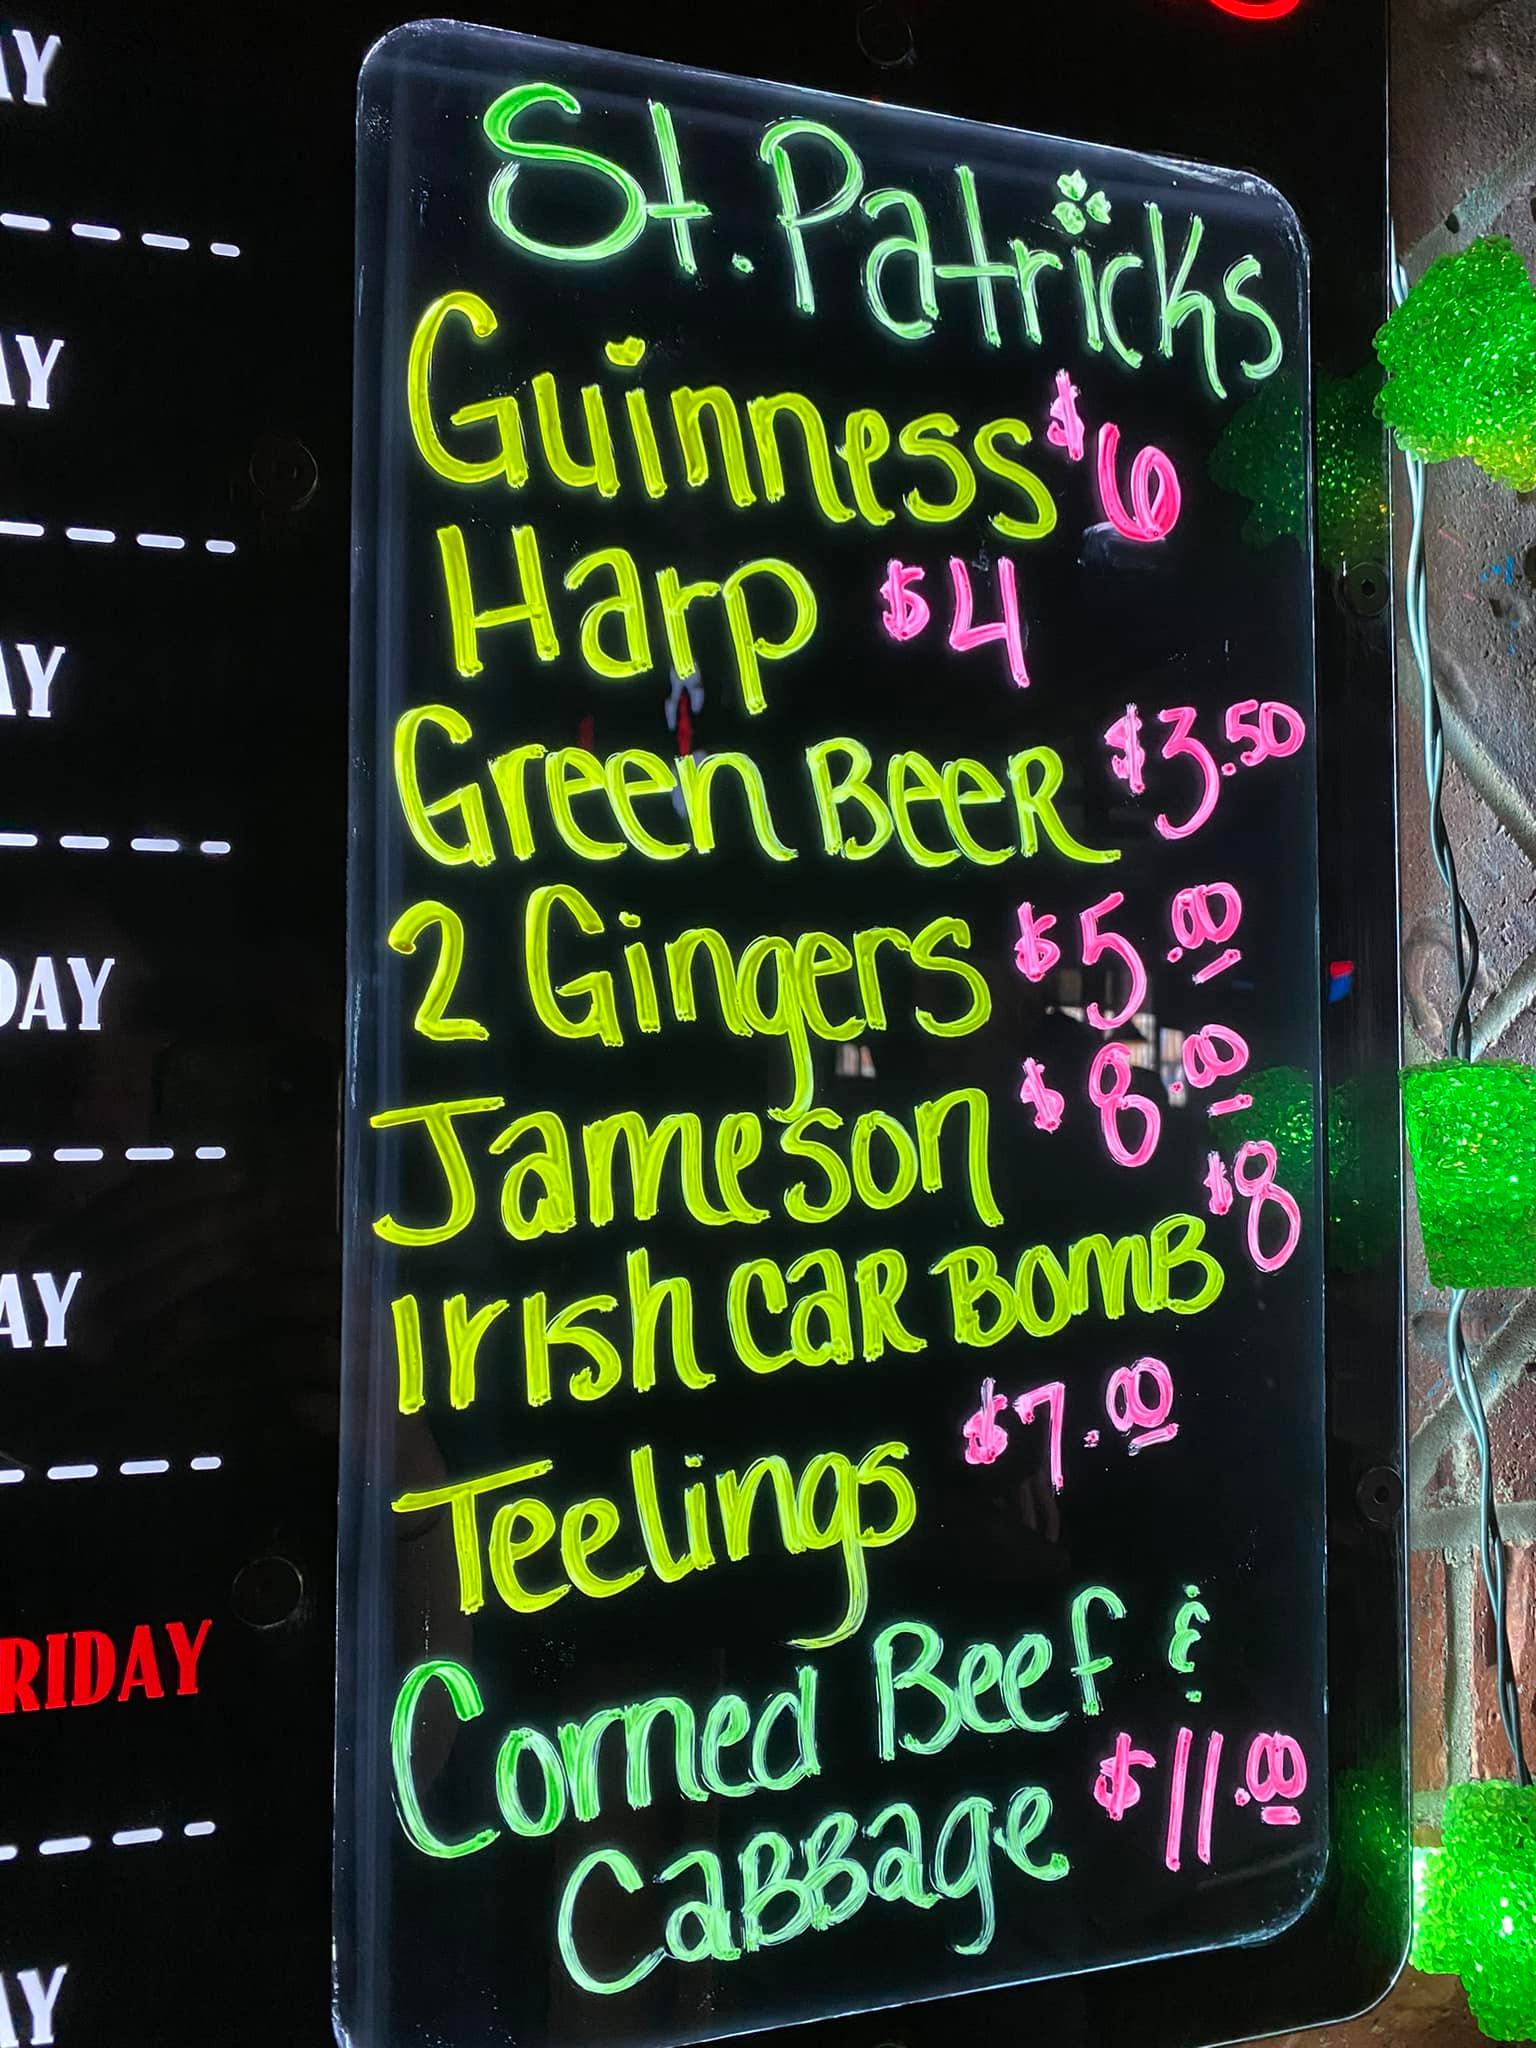 St. Patricks
Guinness $6
Harp $4
Green Beer $3.50
2 Gingers $5.00
Jameson $8.00
Irish Car Bomb $8
Teelings $7.00
Corned Beef &
Cabbage $11.00
AY
AY
AY
DAY
AY
RIDAY
AY